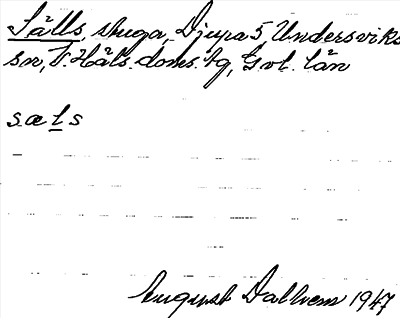 Sälls stuga, Djupa 5 Undersviks
sn, V. Häls. doms. tg, Gvl. län
sæls
August Dalhem 1947